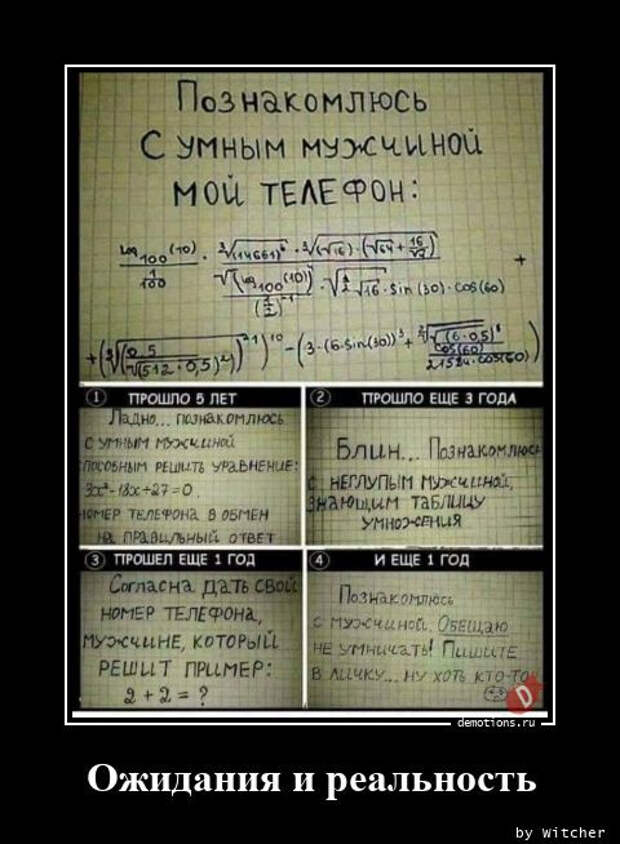 Познакомлюсь
С умным мужчиной
мой телефон:
log₁₀₀(10)
1/100
+
① ПРОШЛО 5 ЛЕТ
Ладно... познакомлюсь
с умным мужчиной
способным решить уравнение:
3x²-18x+27=0.
номер телефона в обмен
на правильный ответ
② ПРОШЛО ЕЩЕ 3 ГОДА
Блин... Познакомлюсь
с неглупым мужчиной,
знающим таблицу
умножения
③ ПРОШЕЛ ЕЩЕ 1 ГОД
Согласна дать свой
номер телефона,
мужчине, который
решит пример:
2+2=?
④ И ЕЩЕ 1 ГОД
Познакомлюсь
с мужчиной. Обещаю
не умничать! Пишите
в личку... ну хоть кто-то
D
demotions.ru
Ожидания и реальность
by Witcher